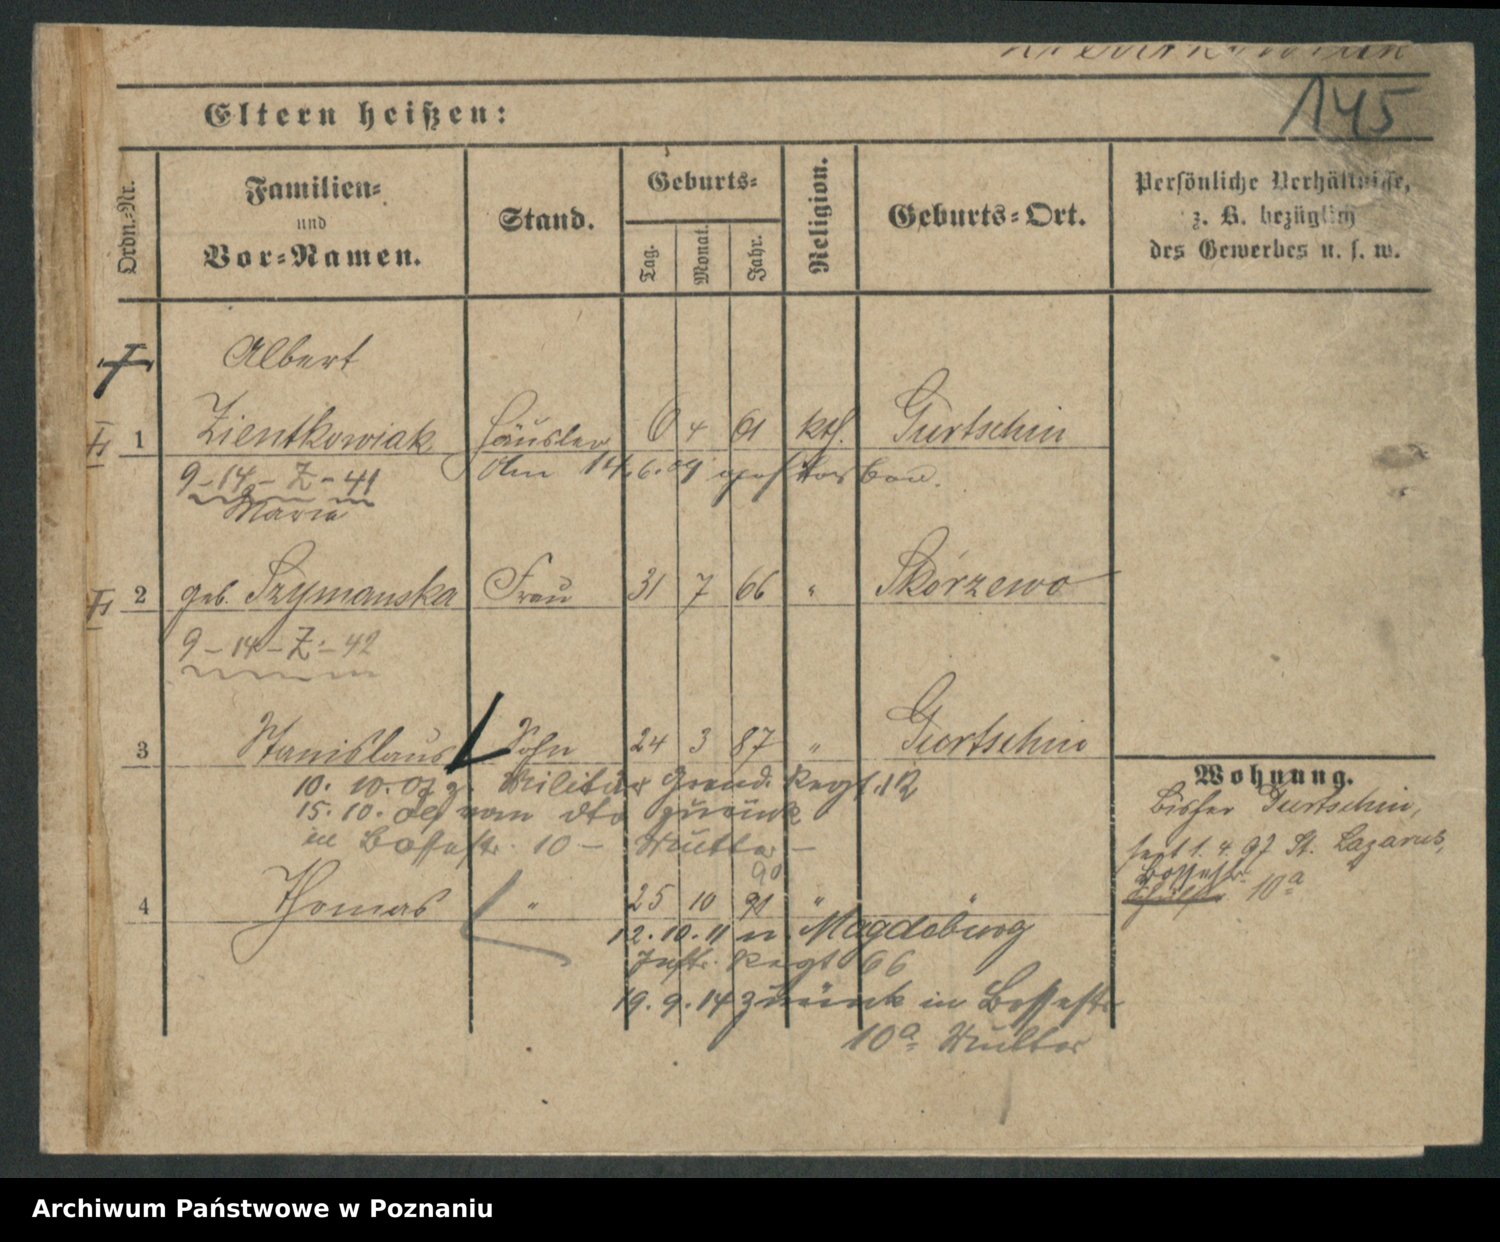 145
Eltern heißen:
Ordn.-Nr.
Familien-
und
Vor-Namen.
Stand.
Geburts-
Tag.
Monat.
Jahr.
Religion.
Geburts-Ort.
Persönliche Verhältnisse,
z. B. bezüglich
des Gewerbes u. s. w.
Albert
1 Zientkowiak Häusler 6 4 61 kth. Gurtschin
Am 14.6.09 gestorben.
9-14-Z-41
Maria
2 geb. Szymanska Frau 31 7 66 " Skórzewo
9-14-Z-42
3 Stanislaus Sohn 24 3 87 " Gurtschin
10. 10. 07 z. Militär Grend. Regt. 12
15. 10. 09 vom dto zurück
in 10 - Mutter -
90
4 Thomas " 25 10 91 " "
12.10.11 n. Magdeburg
Inftr. Regt 66
19.9.14 zurück in
10a Mutter
Wohnung.
bisher Gurtschin,
seit 1. 4. 97 St. Lazarus,
10a